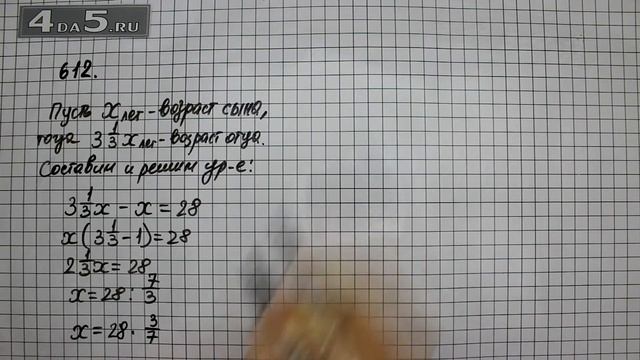 4DA5.RU
612.
Пусть x лет - возраст сына,
тогда 3 1/3 x лет - возраст отца.
Составим и решим ур-е:
3 1/3 x - x = 28
x(3 1/3 - 1) = 28
2 1/3 x = 28
x = 28 : 7/3
x = 28 · 3/7